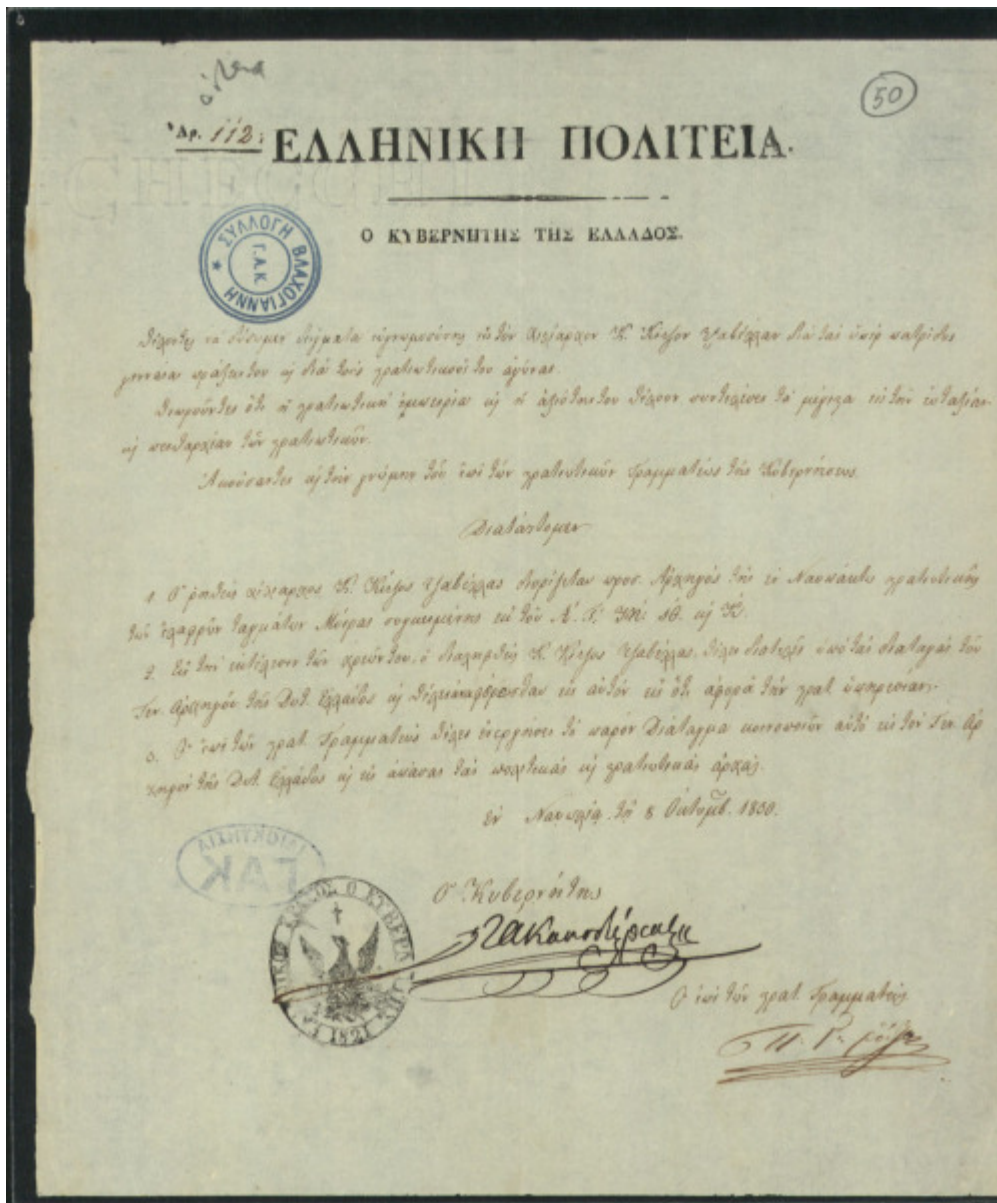 50
Ἀρ. 112. ΕΛΛΗΝΙΚΗ ΠΟΛΙΤΕΙΑ.
Ο ΚΥΒΕΡΝΗΤΗΣ ΤΗΣ ΕΛΛΑΔΟΣ.
ΣΥΛΛΟΓΗ ΒΛΑΧΟΓΙΑΝΝΗ
Γ.Α.Κ.
Θέλοντες νὰ δώσωμεν δείγματα εὐγνωμοσύνης εἰς τὸν χιλίαρχον Κ. Κίτζον Τζαβέλλαν διὰ τὰς ὑπὲρ πατρίδος
γενναίας πράξεις του καὶ διὰ τοὺς στρατιωτικούς του ἀγῶνας.
Θεωροῦντες ὅτι ἡ στρατιωτικὴ ἐμπειρία καὶ ἡ ἀξιότης του θέλουν συντελέσει τὰ μέγιστα εἰς τὴν εὐταξίαν
καὶ πειθαρχίαν τῶν στρατιωτικῶν.
Ἀκούσαντες καὶ τὴν γνώμην τοῦ ἐπὶ τῶν στρατιωτικῶν Γραμματέως τῆς Κυβερνήσεως.
Διατάττομεν
1. Ὁ ῥηθεὶς χιλίαρχος Κ. Κίτζος Τζαβέλλας διορίζεται προσ. Ἀρχηγὸς τῆς ἐν Ναυπάκτῳ στρατιωτικῆς
τῶν ἐλαφρῶν ταγμάτων Μοίρας συγκειμένης ἐκ τοῦ
2. Εἰς τὴν ἐκτέλεσιν τῶν χρεῶν του, ὁ διαληφθεὶς Κ. Κίτζος Τζαβέλλας, θέλει διατελεῖ ὑπὸ τὰς διαταγὰς τοῦ
Γεν. Ἀρχηγοῦ τῆς Δυτ. Ἑλλάδος καὶ θέλει ἀναφέρεσθαι εἰς αὐτὸν εἰς ὅ,τι ἀφορᾷ τὴν στρατ. ὑπηρεσίαν.
3. Ὁ ἐπὶ τῶν στρατ. Γραμματεὺς θέλει ἐνεργήσει τὸ παρὸν Διάταγμα κοινοποιῶν αὐτὸ εἰς τὸν Γεν. Ἀρ
χηγὸν τῆς Δυτ. Ἑλλάδος καὶ εἰς ἁπάσας τὰς πολιτικὰς καὶ στρατιωτικὰς ἀρχάς.
ἐν Ναυπλίῳ τῇ 8 Ὀκτωμβ. 1830.
ΙΔΙΟΚΤΗΣΙΑ
ΓΑΚ
Ὁ Κυβερνήτης
Ι Α Καποδίστριας
1821
Ὁ ἐπὶ τῶν στρατ. Γραμματεὺς